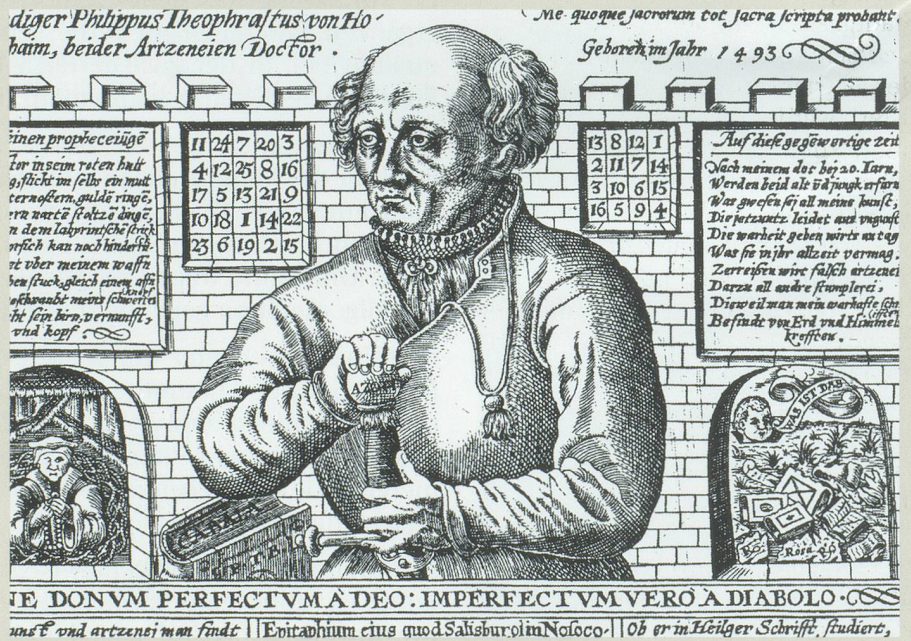 diger Philippus Theophrastus von Ho-
haim, beider Artzeneien Doctor.
Me quoque sacrorum tot sacra scripta probant.
Geboren im Jahr 1493
inen propheceiūgē
tor in seim roten hutt
g, sticht im selbs ein mutt
ternostern, guldē ringē,
dem labyrintische strick
orsich kan noch hindersi-
et vber meinem waffn
ben stuck, gleich einem affn
eschraubt meins schwertes
knopf
ht sein hirn, vernunfft,
vnd kopf
11 24 7 20 3
4 12 25 8 16
17 5 13 21 9
10 18 1 14 22
23 6 19 2 15
13 8 12 1
2 11 7 14
3 10 6 15
16 5 9 4
Auf diese gegēwertige zeit
Nach meinem dot bey 20. Iarn,
Werden beid alt vād jungk erfarn
Was gwesen sej all meine kunst,
Die jetzuntz leidet aus vngunst
Die warheit geben wirts an tag
Was sie in jhr allzeit vermag.
Zerreissen wirt falsch artzenei
Darzu all andre stumplerei,
Dieweil man mein warhaffte
Befindt von Erd vnd Himmels
krefften.
AZOTH
WAS IST DAS
Rosa
NE DONVM PERFECTVM À DEO: IMPERFECTVM VERO À DIABOLO.
unst vnd artzenei man findt
Epitaphium eius quod Salisburgi in Nosoco-
Ob er in Heilger Schrifft, studiert,